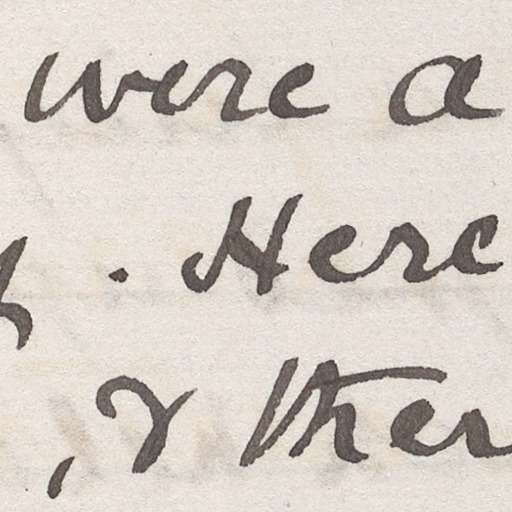 were a
. Here
, & ther